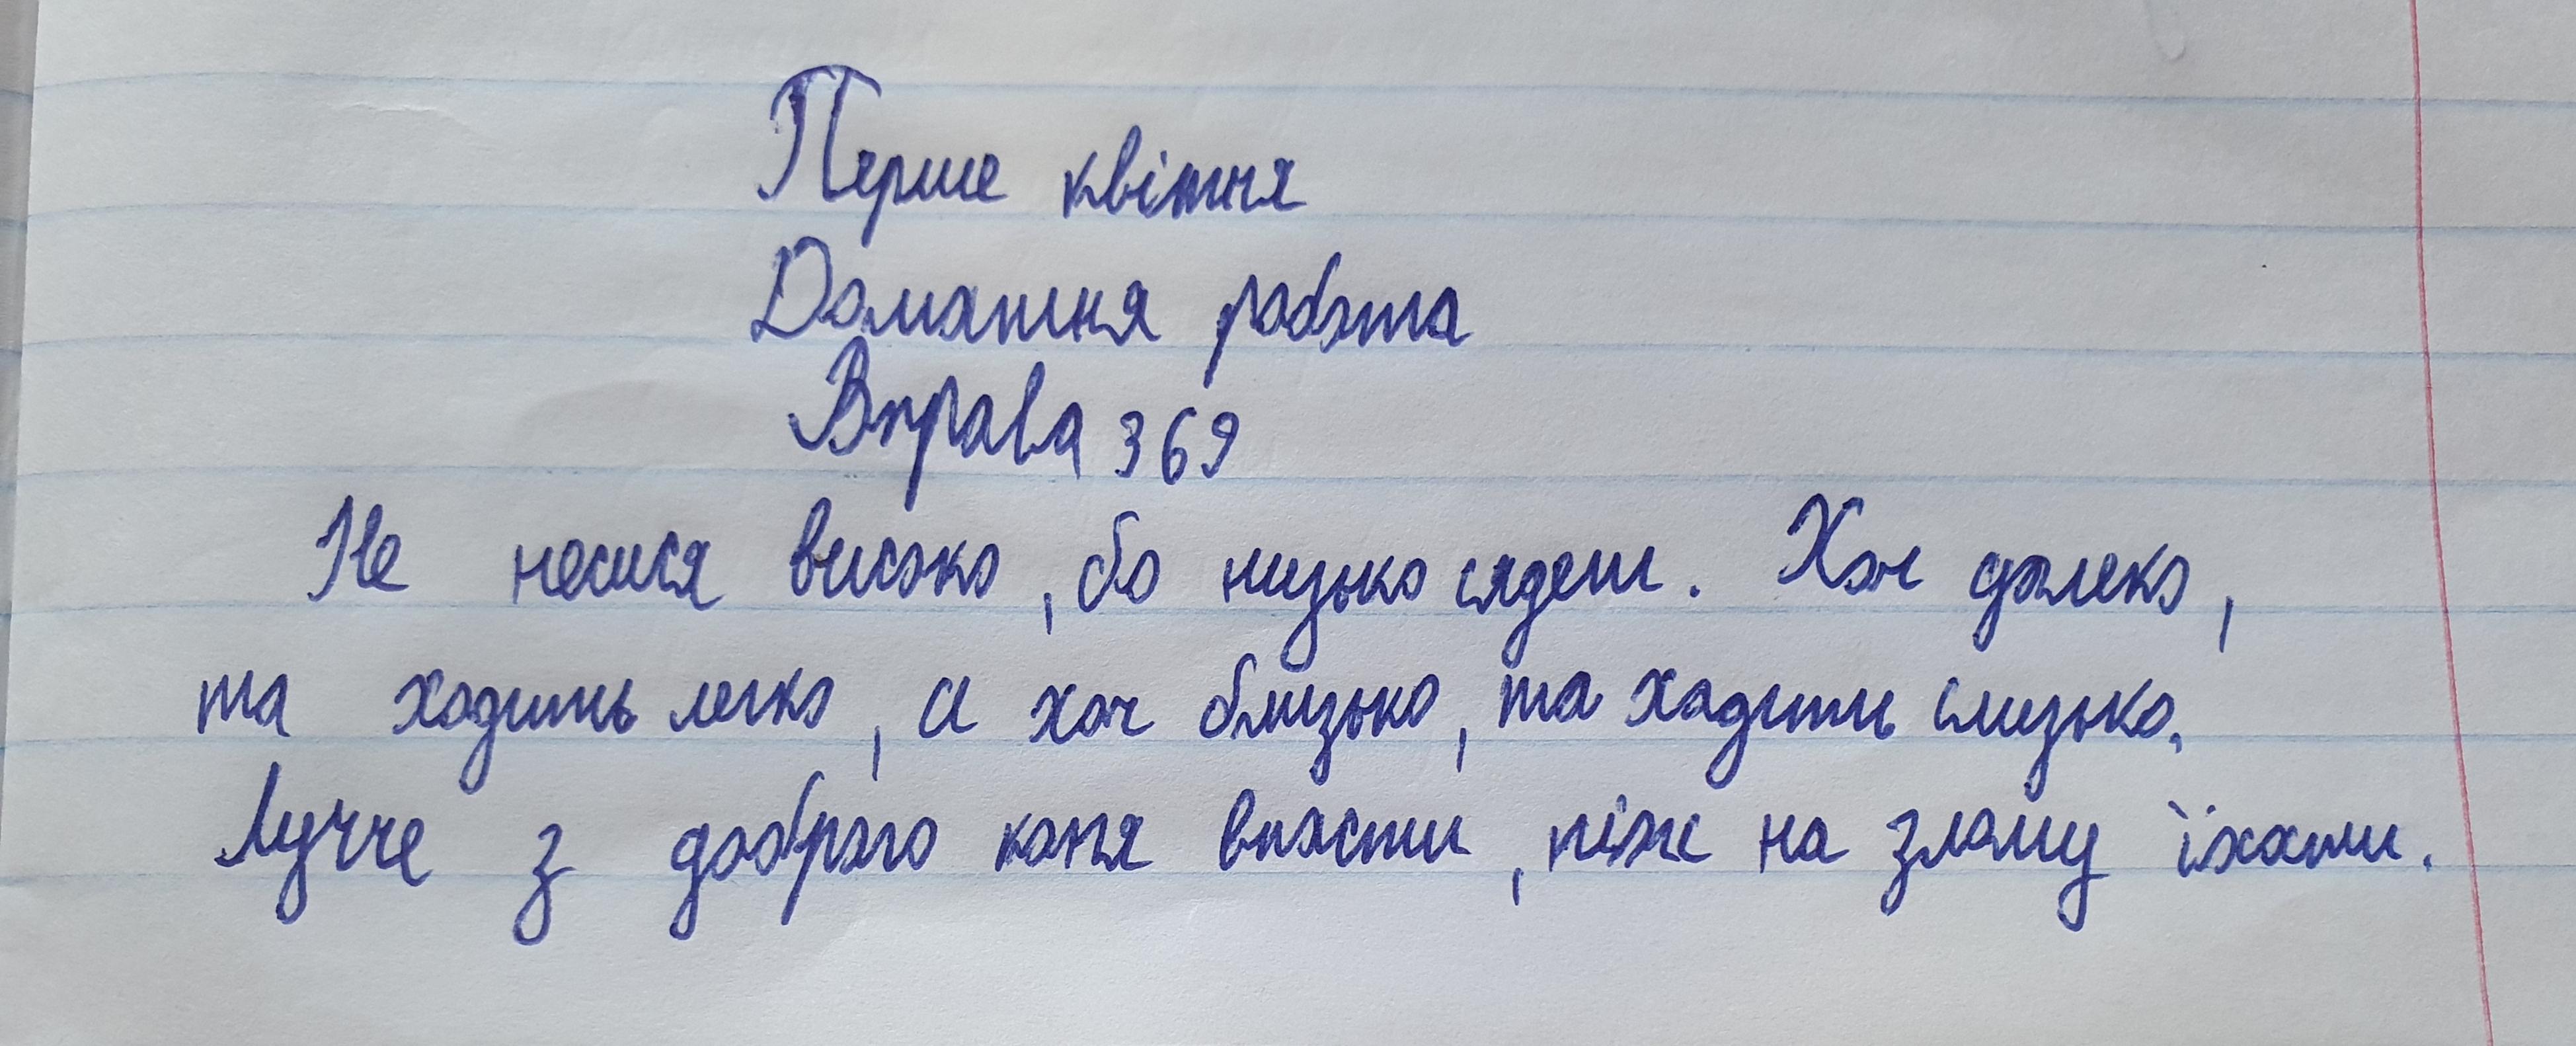 Перше квітня
Домашня робота
Вправа 369
Не носися високо, бо низько сядеш. Хоч далеко,
та ходить легко, а хоч близько, та ходити слизько.
Лучче з доброго коня впасти, ніж на злому їхати.